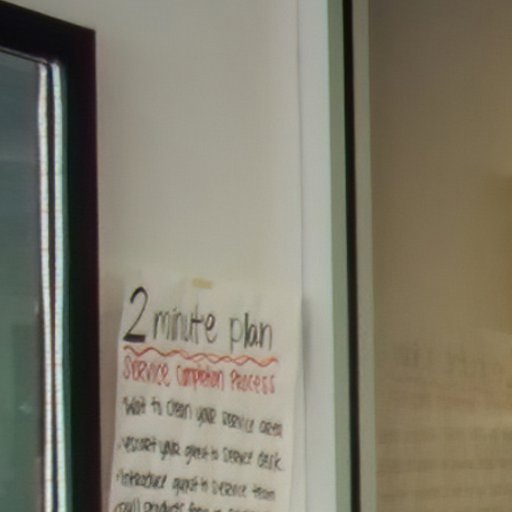 2 minute plan
Service Completion Process
Wait to clean your service area
escort your guest to service desk
Introduce guest to service team
products